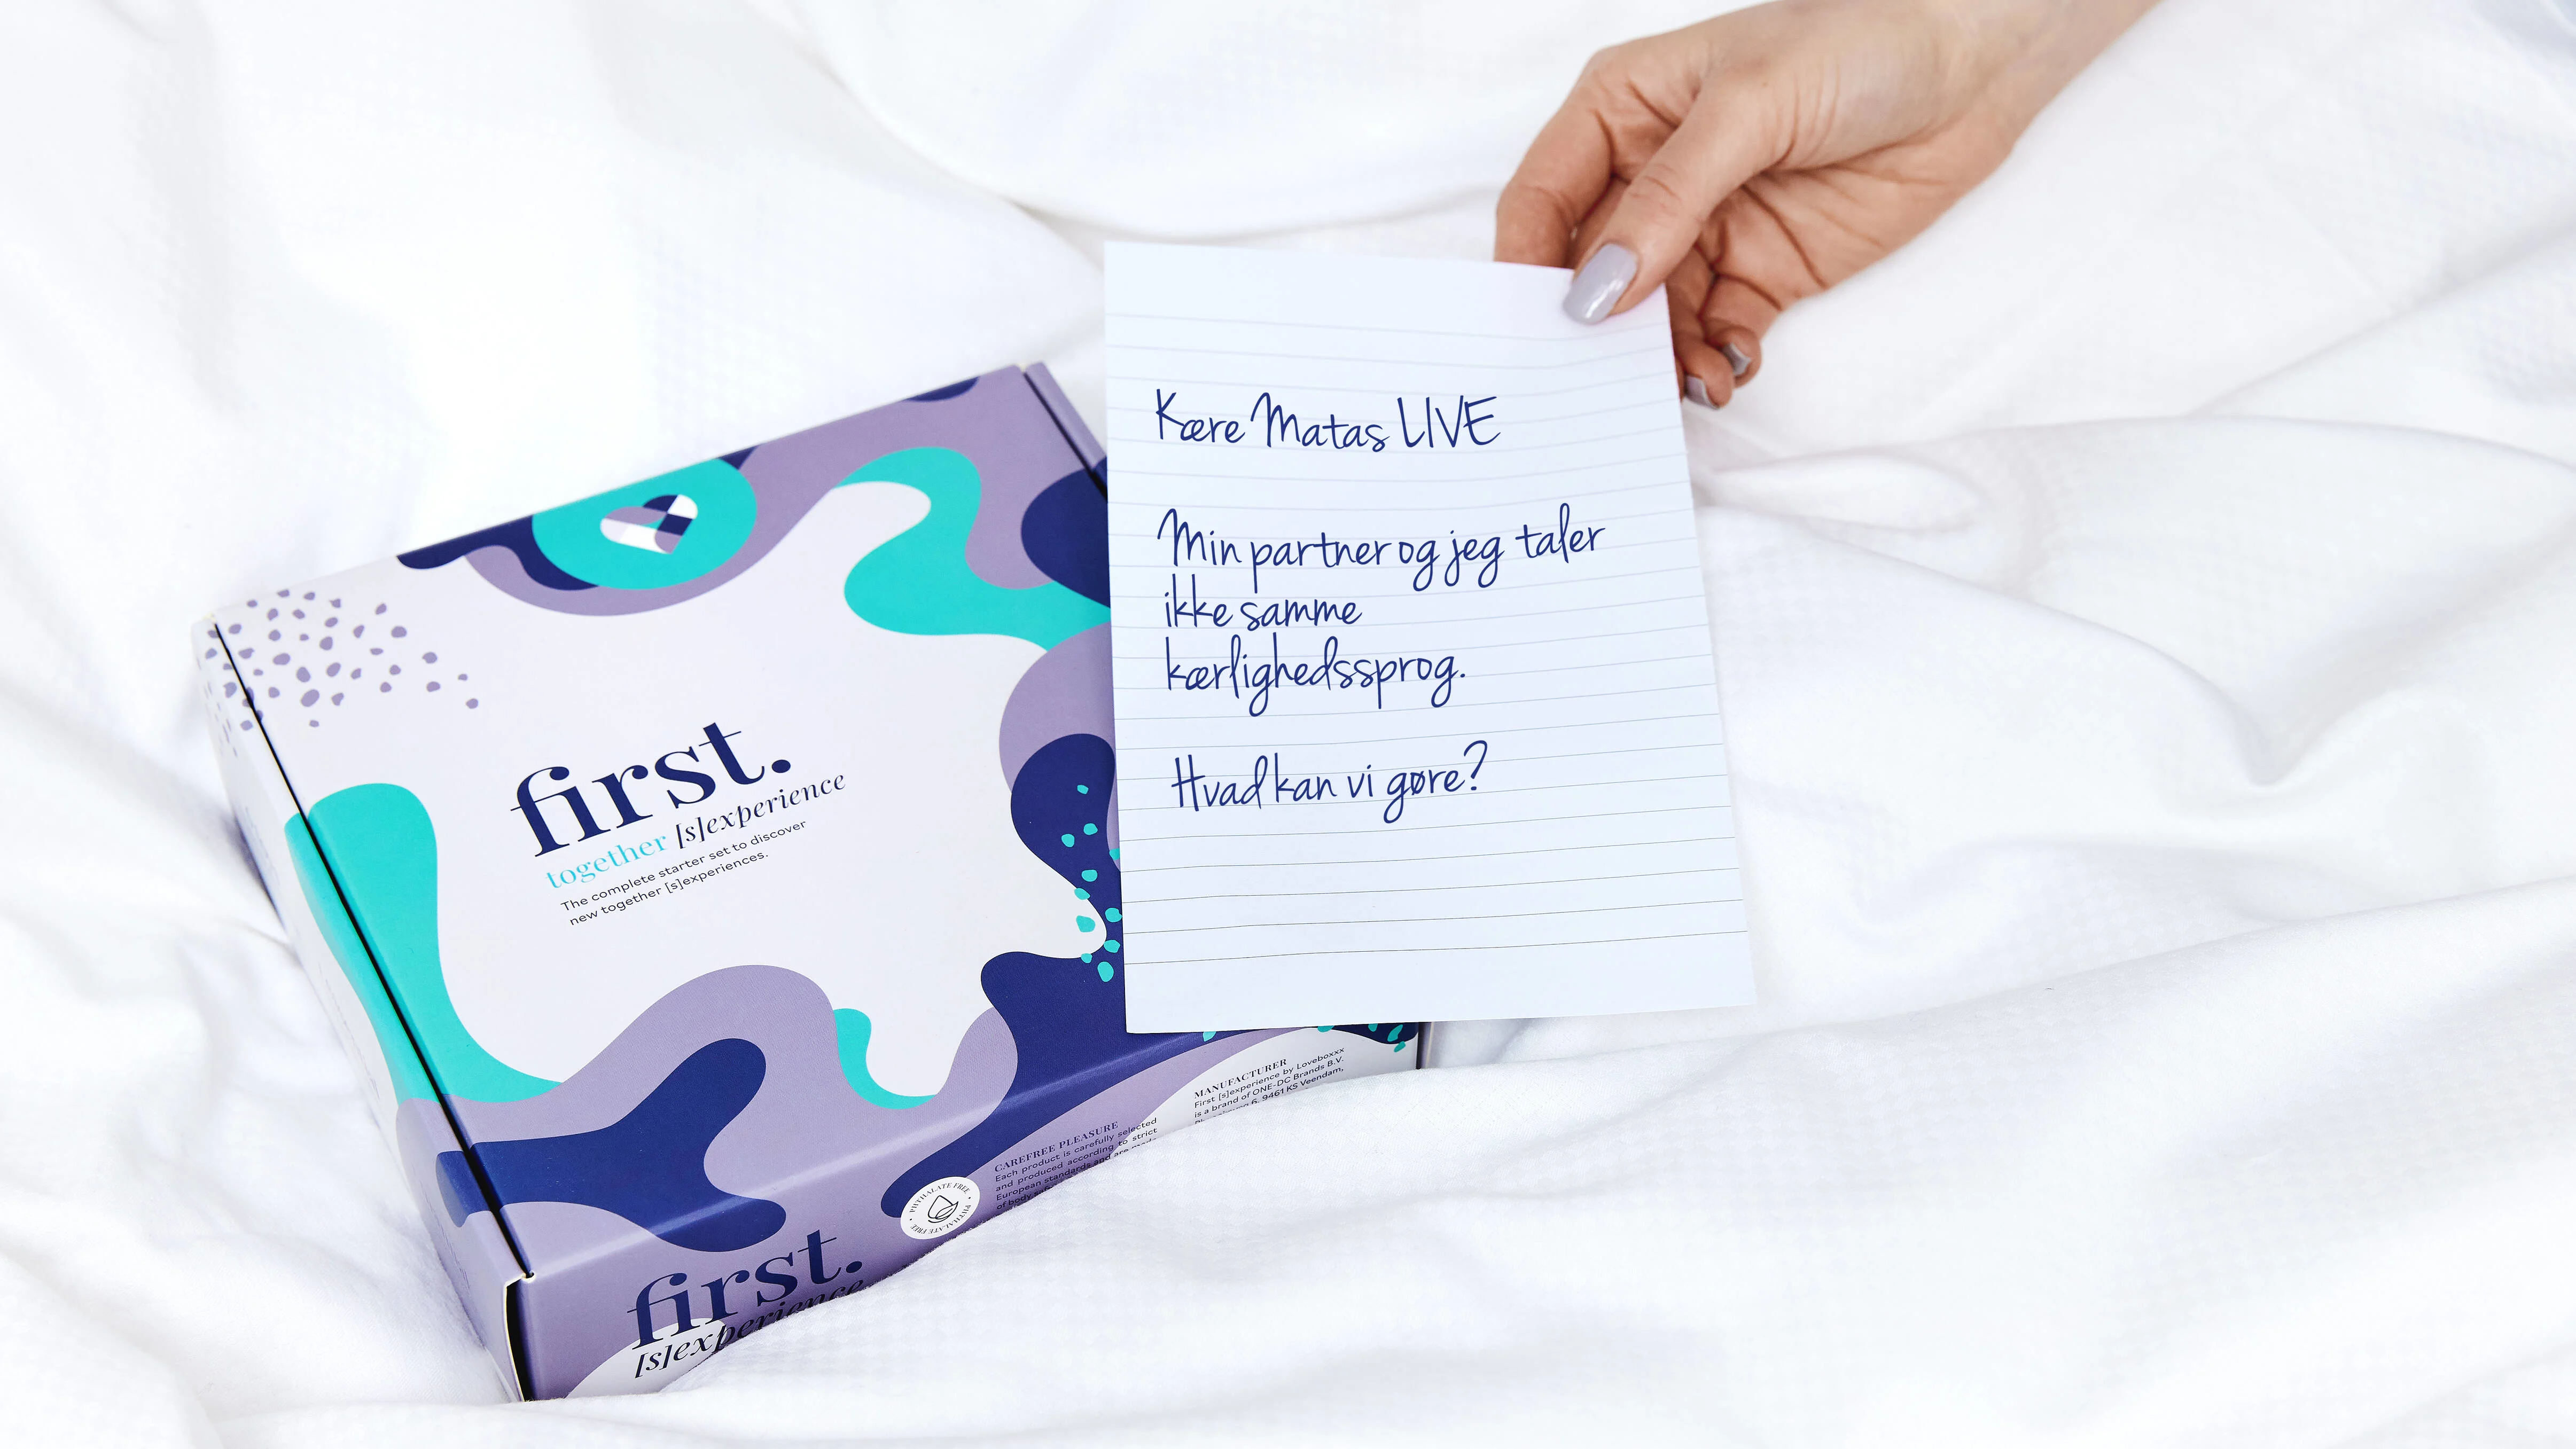 Kære Matas LIVE
Min partner og jeg taler
ikke samme
kærlighedssprog.
Hvad kan vi gøre?
first.
together [s]experience
The complete starter set to discover
new together [s]experiences.
MANUFACTURER
First [s]experience by Loveboxxx
is a brand of ONE-DC Brands B.V.
6, 9461 KS Veendam,
CAREFREE PLEASURE
Each product is carefully selected
and produced according to strict
European standards and are made
of body
PHTHALATE FREE • PHTHALATE FREE •
first.
[s]experience